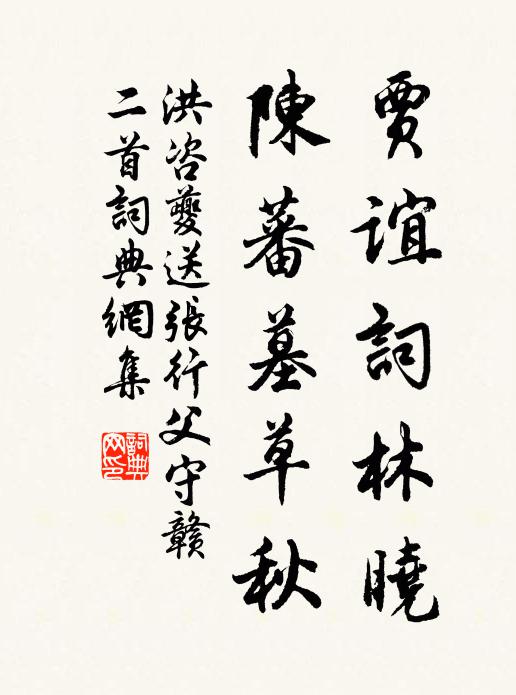 賈誼詞林曉
陳蕃墓草秋
洪咨夔送張行父守贛
二首詞典網集
詞典網印